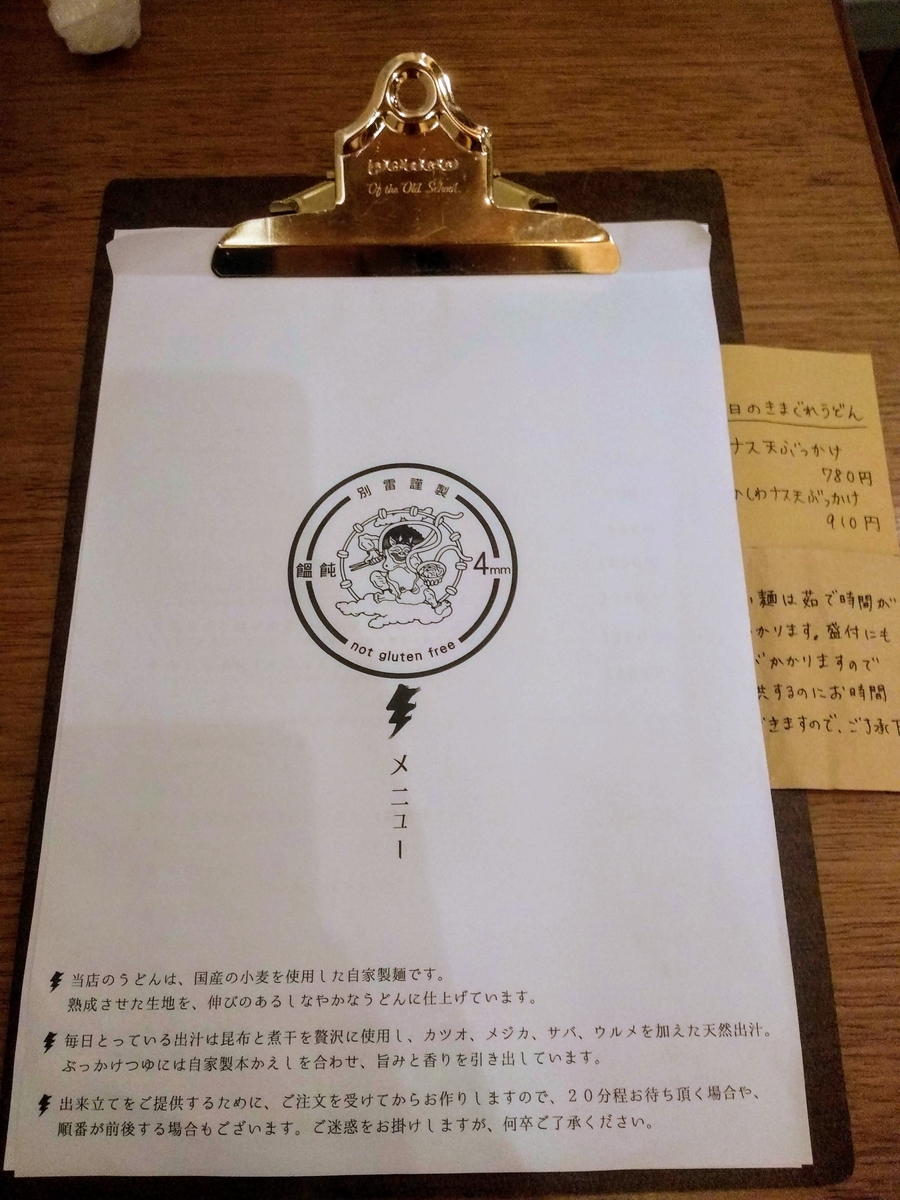 Of the Old School
別雷謹製
饂飩
4mm
not gluten free
メニュー
当店のうどんは、国産の小麦を使用した自家製麺です。
熟成させた生地を、伸びのあるしなやかなうどんに仕上げています。
毎日とっている出汁は昆布と煮干を贅沢に使用し、カツオ、メジカ、サバ、ウルメを加えた天然出汁。
ぶっかけつゆには自家製本かえしを合わせ、旨みと香りを引き出しています。
出来立てをご提供するために、ご注文を受けてからお作りしますので、２０分程お待ち頂く場合や、
順番が前後する場合もございます。ご迷惑をお掛けしますが、何卒ご了承ください。
日のきまぐれうどん
ナス天ぶっかけ
780円
しわナス天ぶっかけ
910円
麺は茹で時間が
かります。盛付にも
がかかりますので
供するのにお時間
きますので、ご了承下